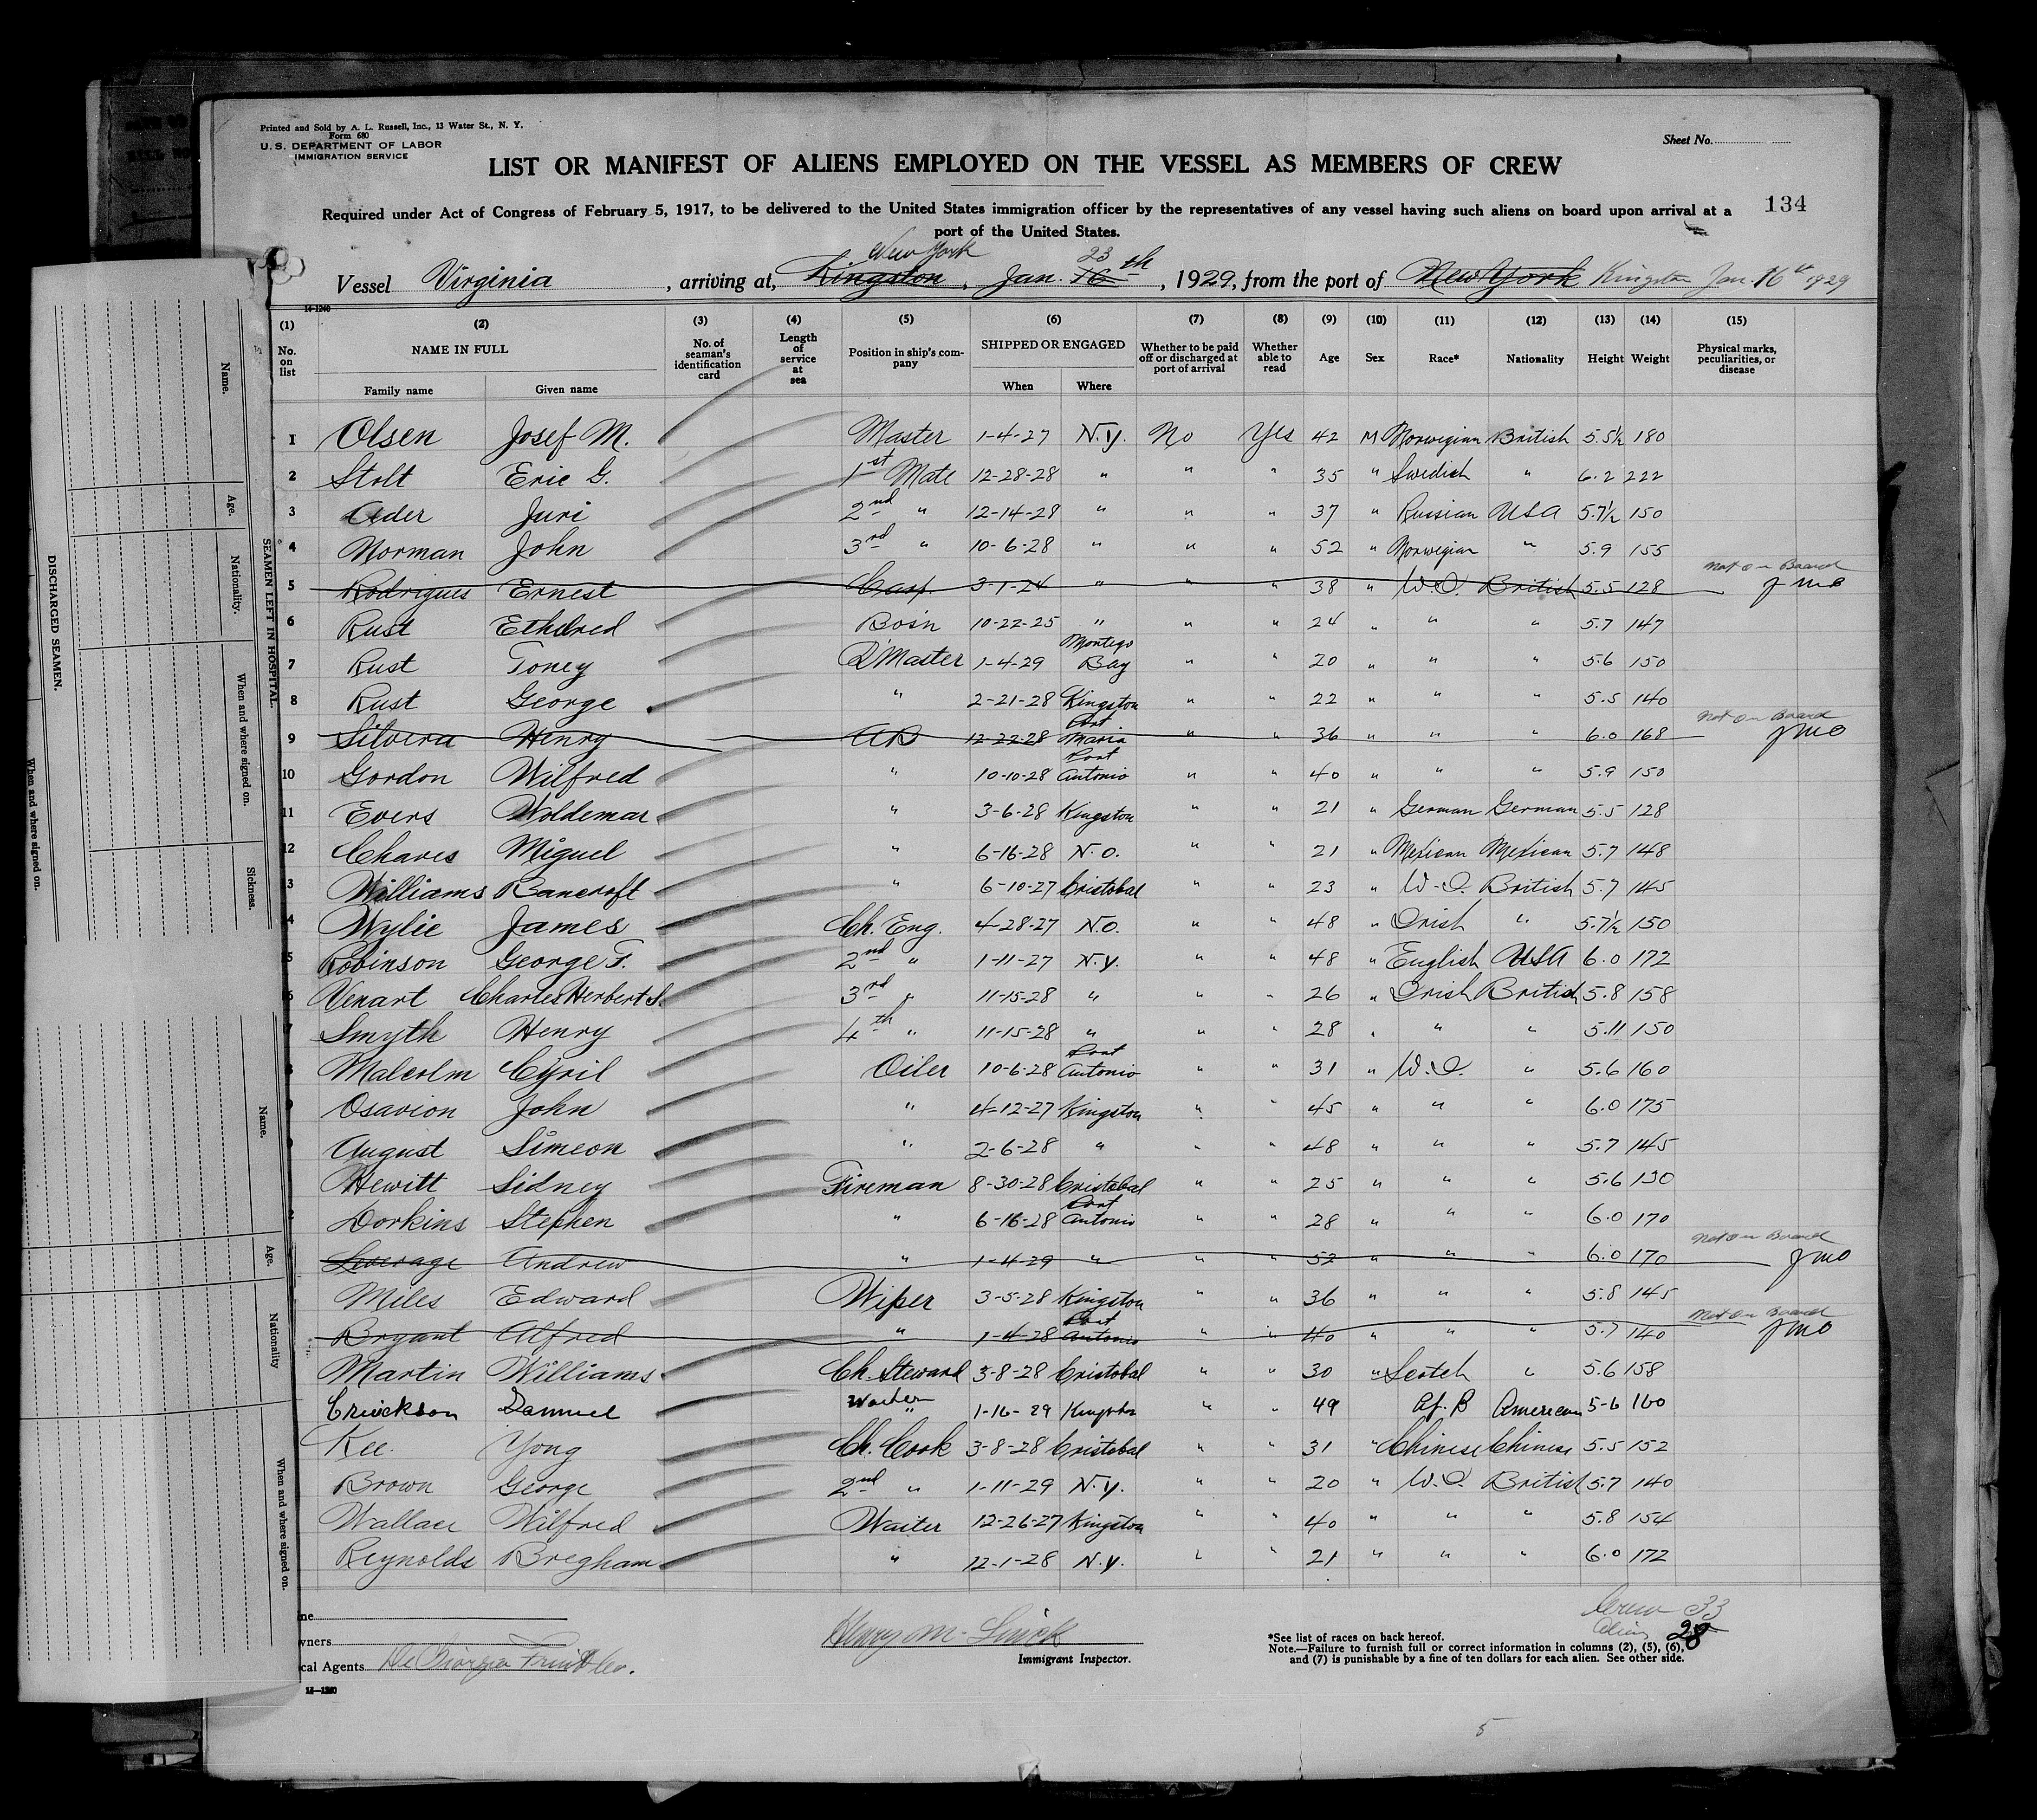 Printed and Sold by A. L. Russell, Inc., 13 Water St., N. Y.
Form 680
U. S. DEPARTMENT OF LABOR
IMMIGRATION SERVICE
Sheet No.
LIST OR MANIFEST OF ALIENS EMPLOYED ON THE VESSEL AS MEMBERS OF CREW
Required under Act of Congress of February 5, 1917, to be delivered to the United States immigration officer by the representatives of any vessel having such aliens on board upon arrival at a
port of the United States.
134
New York 23
Vessel Virginia, arriving at, Kingston, Jan. 16th, 1929, from the port of New York Kingston Jan. 16th 1929
14-1240
(1) (2) (3) (4) (5) (6) (7) (8) (9) (10) (11) (12) (13) (14) (15)
No. on list NAME IN FULL Family name Given name No. of seaman's identification card Length of service at sea Position in ship's company SHIPPED OR ENGAGED When Where Whether to be paid off or discharged at port of arrival Whether able to read Age Sex Race* Nationality Height Weight Physical marks, peculiarities, or disease
1 Olsen Josef M. Master 1-4-27 N.Y. No Yes 42 M Norwegian British 5.5½ 180
2 Stolt Eric G. 1st Mate 12-28-28 " " " 35 " Swedish " 6.2 222
3 Ader Juri 2nd " 12-14-28 " " " 37 " Russian USA 5.7½ 150
4 Norman John 3rd " 10-6-28 " " " 52 " Norwegian " 5.9 155
5 Rodrigues Ernest Carp. 3-1-24 " " " 38 " W.I. British 5.5 128 Not on Board JMO
6 Rust Ethelred Bosn 10-22-25 " " " 24 " " " 5.7 147
7 Rust Toney Q'Master 1-4-29 Montego Bay " " 20 " " " 5.6 150
8 Rust George " 2-21-28 Kingston " " 22 " " " 5.5 140
9 Silvera Henry AB 12-22-28 Port Maria " " 36 " " " 6.0 168 Not on Board JMO
10 Gordon Wilfred " 10-10-28 Port Antonio " " 40 " " " 5.9 150
11 Evers Woldemar " 3-6-28 Kingston " " 21 " German German 5.5 128
12 Chaves Miguel " 6-16-28 N.O. " " 21 " Mexican Mexican 5.7 148
3 Williams Bancroft " 6-10-27 Cristobal " " 23 " W.I. British 5.7 145
4 Wylie James Ch. Eng. 4-28-27 N.O. " " 48 " Irish " 5.7½ 150
5 Robinson George F. 2nd " 1-11-27 N.Y. " " 48 " English USA 6.0 172
6 Venart Charles Herbert S. 3rd " 11-15-28 " " " 26 " Irish British 5.8 158
7 Smyth Henry 4th " 11-15-28 " " " 28 " " " 5.11 150
8 Malcolm Cyril Oiler 10-6-28 Port Antonio " " 31 " W.I. " 5.6 160
9 Osavion John " 4-12-27 Kingston " " 45 " " " 6.0 175
August Simeon " 2-6-28 " " " 48 " " " 5.7 145
Hewitt Sidney Fireman 8-30-28 Cristobal " " 25 " " " 5.6 130
2 Dorkins Stephen " 6-16-28 Port Antonio " " 28 " " " 6.0 170
Leverage Andrew " 1-4-29 " " " 52 " " " 6.0 170 Not on Board JMO
Miles Edward Wiper 3-5-28 Kingston " " 36 " " " 5.8 145
Bryant Alfred " 1-4-28 Port Antonio " " 40 " " " 5.7 140 Not on Board JMO
Martin Williams Ch. Steward 3-8-28 Cristobal " " 30 " Scotch " 5.6 158
Erickson Samuel 1-16-29 " " 49 Af. B American 5-6 160
Kee Yong Ch. Cook 3-8-28 Cristobal " " 31 " Chinese Chinese 5.5 152
Brown George 2nd " 1-11-29 N.Y. " " 20 " W.I. British 5.7 140
Wallace Wilfred Waiter 12-26-27 Kingston " " 40 " " " 5.8 154
Reynolds Bregham " 12-1-28 N.Y. " " 21 " " " 6.0 172
Crew 33
Alien 28
ne
wners
cal Agents Di Giorgia Fruit Co.
14-1240
Immigrant Inspector.
*See list of races on back hereof.
Note.—Failure to furnish full or correct information in columns (2), (5), (6),
and (7) is punishable by a fine of ten dollars for each alien. See other side.
5
DISCHARGED SEAMEN.
When and where signed on.
SEAMEN LEFT IN HOSPITAL.
Name.
Age.
Nationality.
When and where signed on.
Sickness.
Name.
Age.
Nationality
When and where signed on.